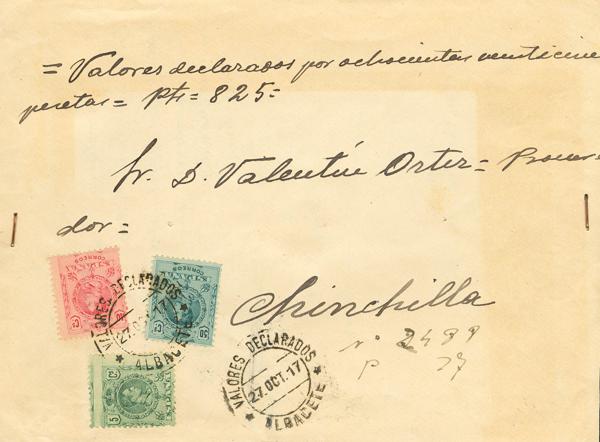 = Valores declarados por ochocientas veinticinco
pesetas = Pts = 825 =
Sr. D. Valentín Ortiz = Procura-
dor =
Chinchilla
Nº 2499
P 27
CORREOS
CORREOS
VALORES DECLARADOS
27.OCT.17
ALBACETE
VALORES DECLARADOS
27.OCT.17
ALBACETE
5